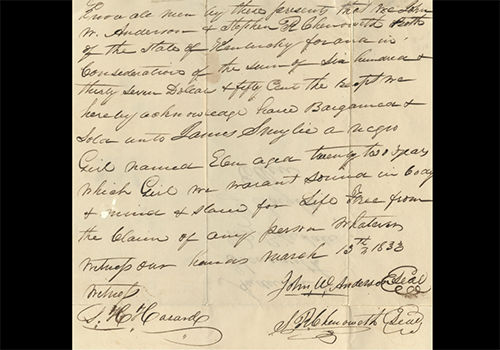 Know all men by these presents that we John
W. Anderson & Stephen R Chenowith Both
of the State of Kentucky for and in
Consideration of the sum of Six hundred &
thirty seven Dollar & fifty Cent the Recpt we
hereby acknowledge have Bargained &
Sold unto James Smylie a negro
Girl named Ellen aged twenty two years
which Girl we warant sound in body
& mind & Slave for Life Free from
the Claim of any person Whatever
Witness our hands March 13th 1833
John W Anderson Seal
Witness
S. R Chenowith Seal